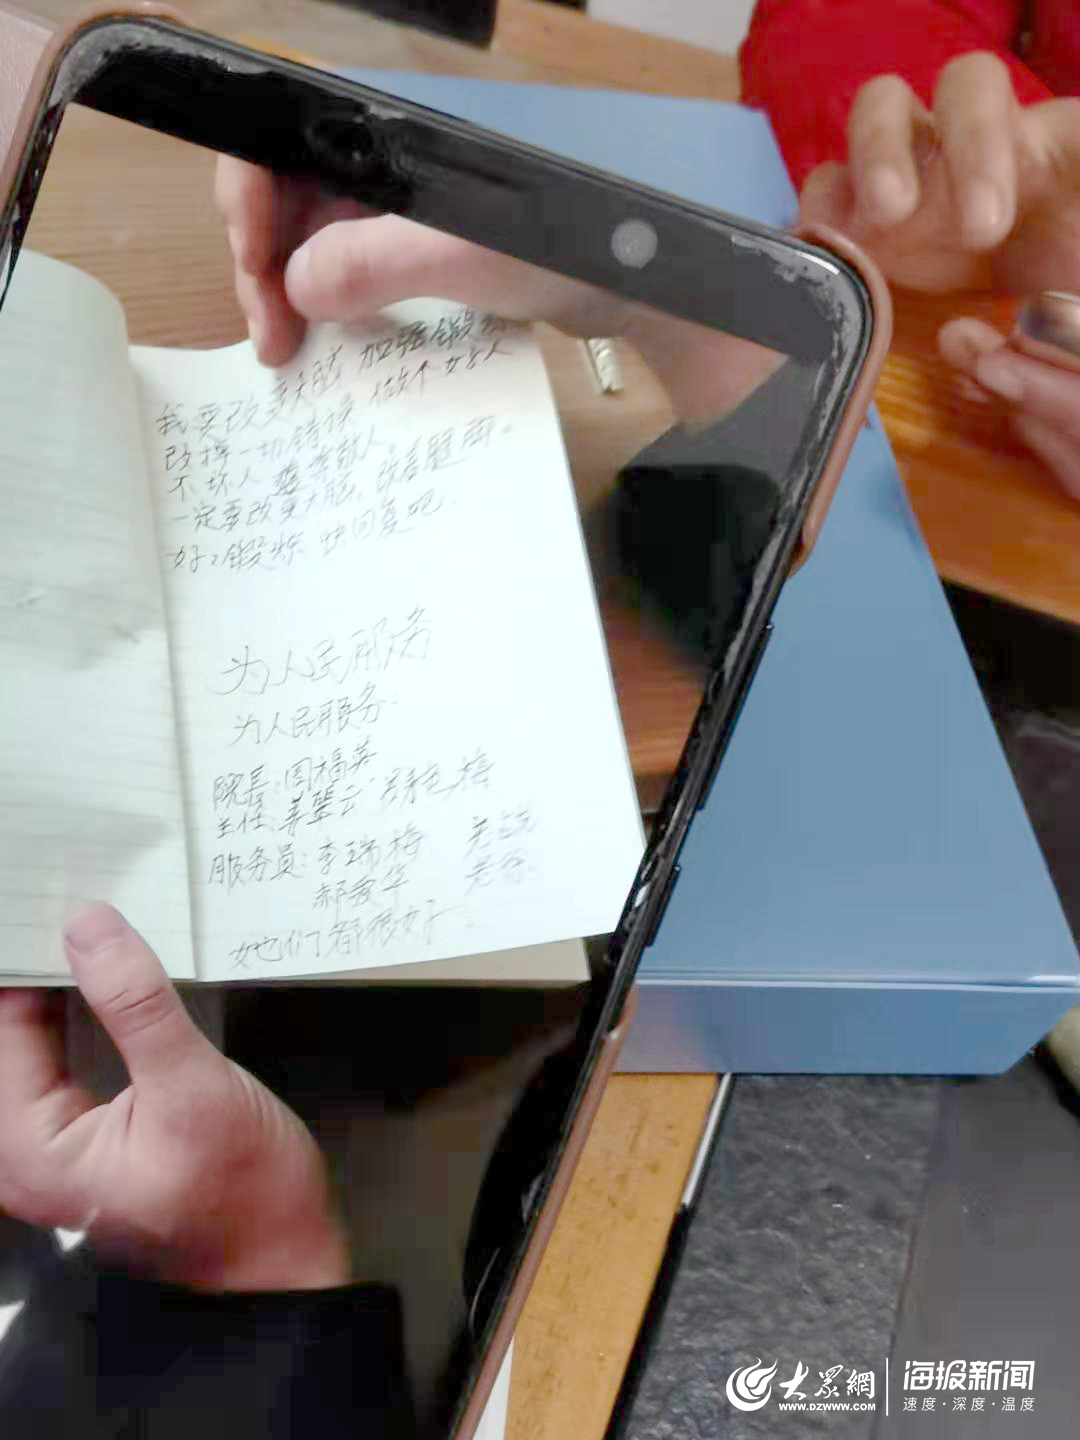 我要改变大脑 加强锻炼
改掉一切错误 做个好人
不坏人 尊敬人
一定要改变大脑,改善
好好锻炼 快回复吧
为人民服务
为人民服务
院长:周福英
主任:姜 云 梅
服务员:李瑞梅
郝 华 老徐
她们都很好
大眾網
WWW.DZWWW.COM
海报新闻
速度·深度·温度